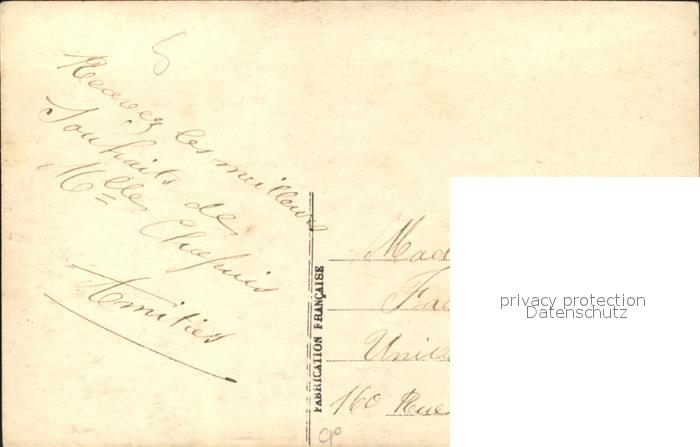 5
Recevez les meilleurs
Souhaits de
Mlle Chapuis
Amitiés
FABRICATION FRANÇAISE
Mad
Fac
Unie
160 Rue
privacy protection
Datenschutz